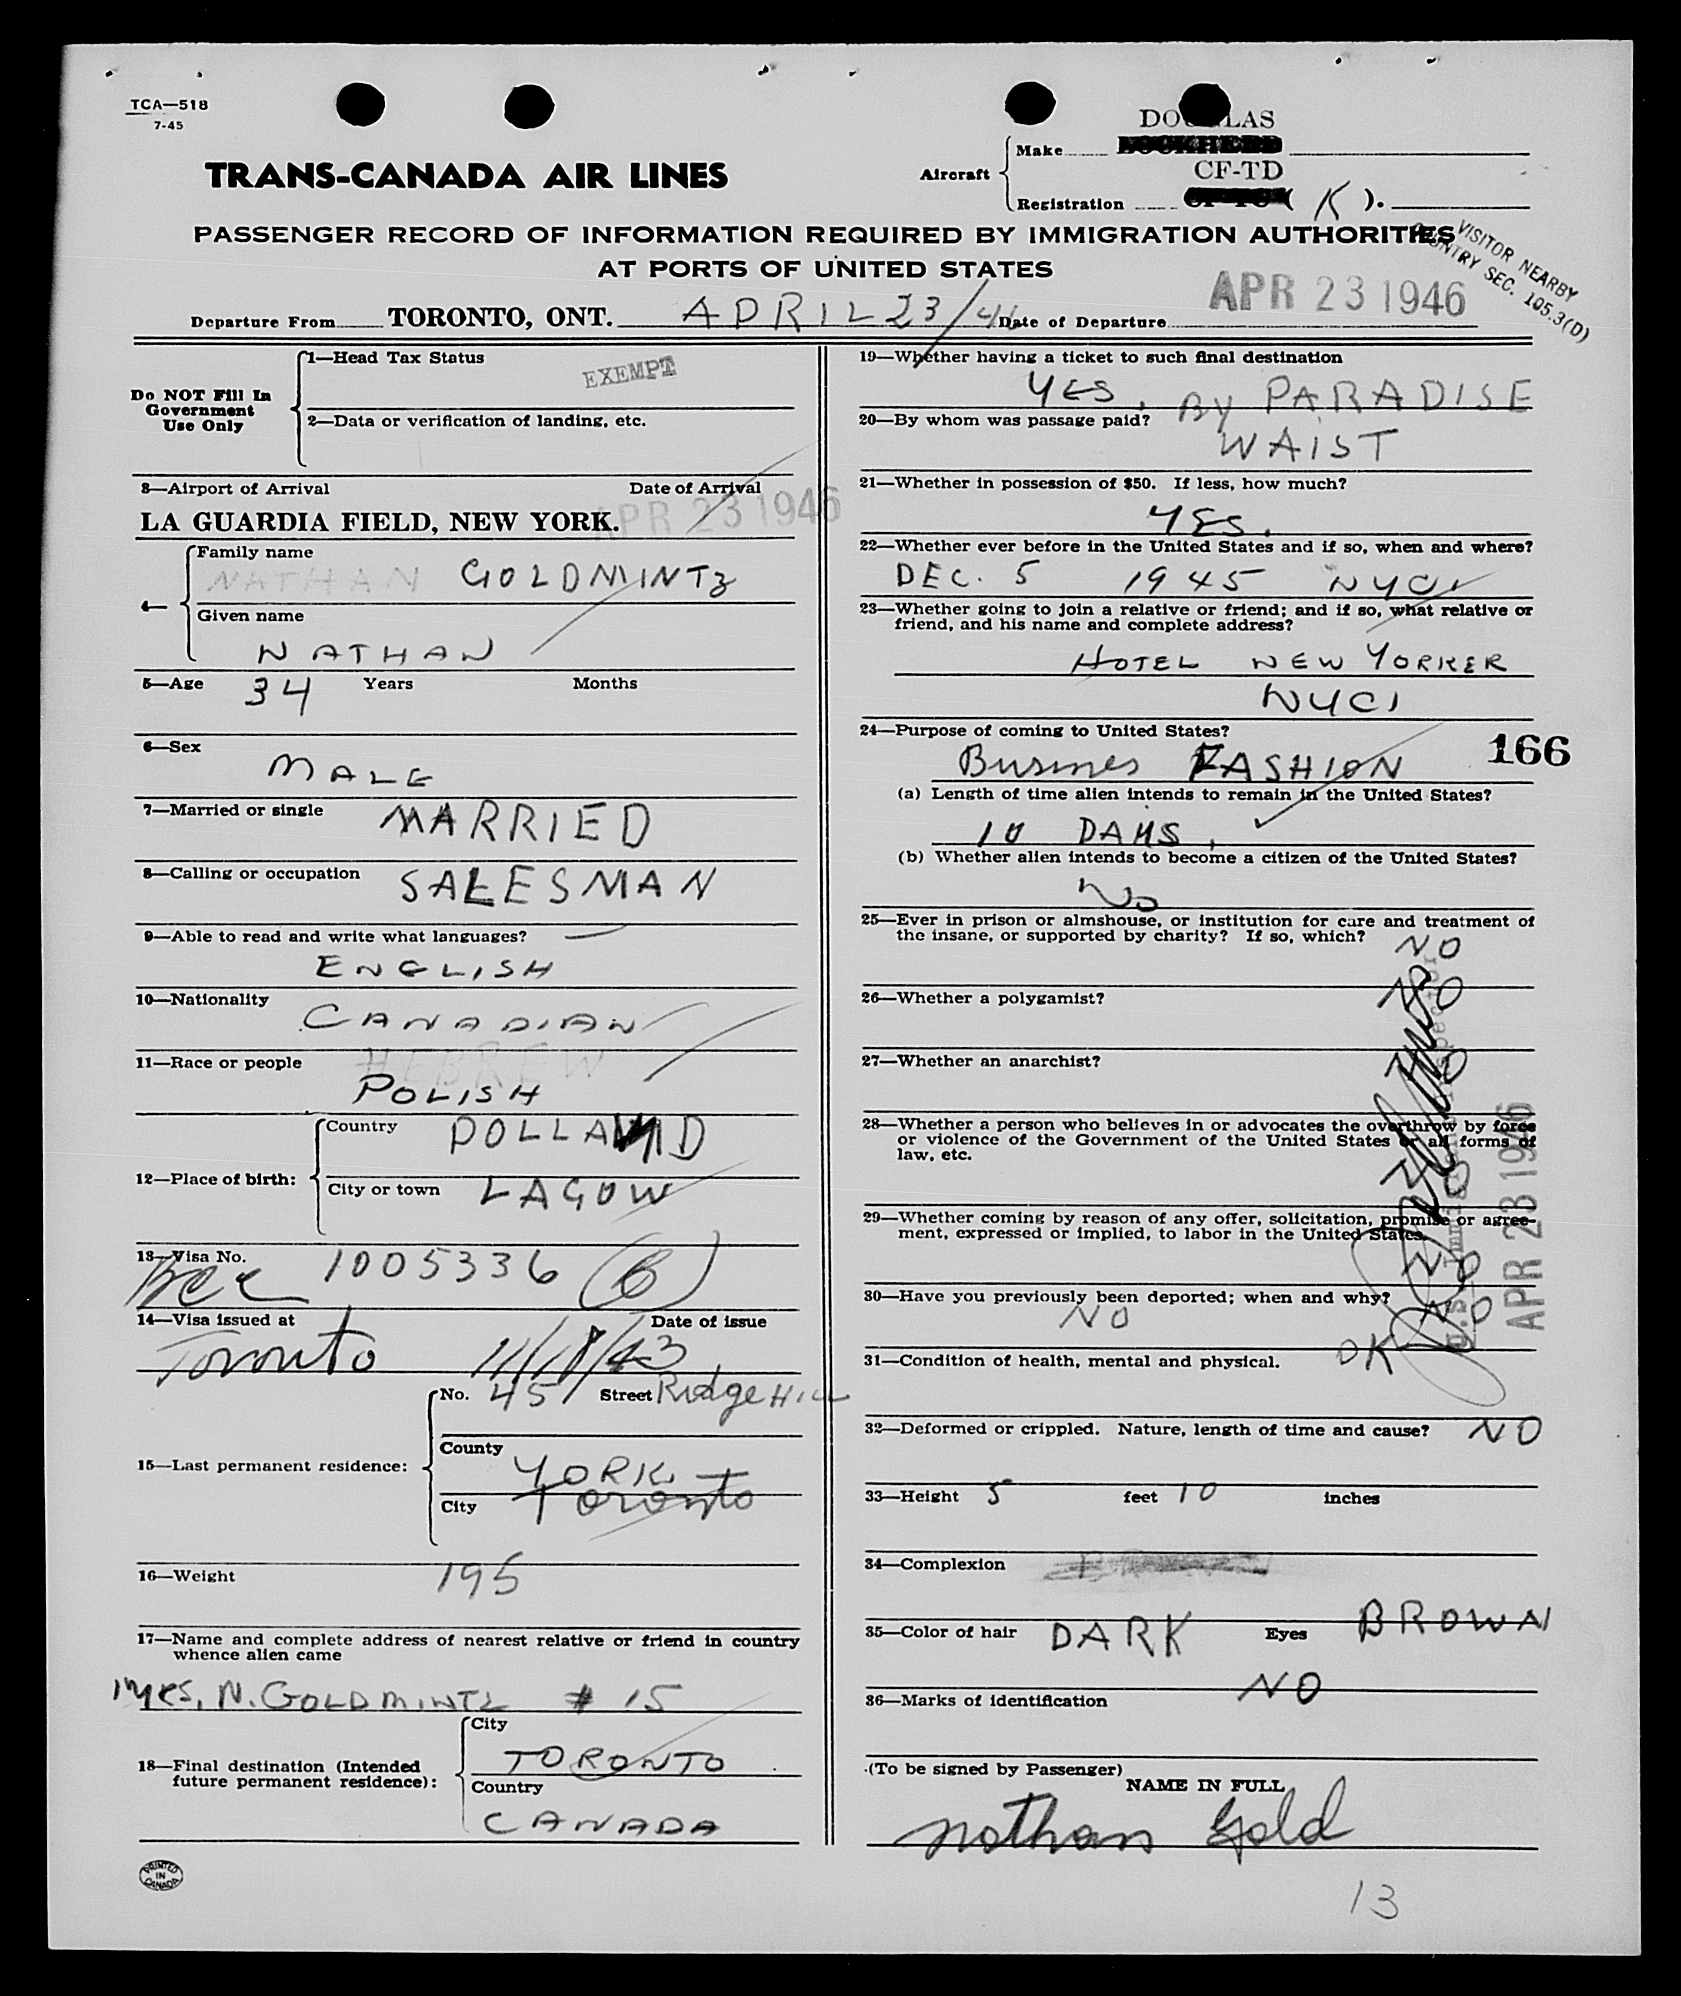 TCA—518
7-45
TRANS-CANADA AIR LINES
Aircraft
DOUGLAS
Make LOCKHEED
CF-TD
Registration CF-TC ( K ).
PASSENGER RECORD OF INFORMATION REQUIRED BY IMMIGRATION AUTHORITIES
AT PORTS OF UNITED STATES
VISITOR NEARBY
COUNTRY SEC. 105.3(D)
Departure From TORONTO, ONT. APRIL 23/46 Date of Departure APR 23 1946
Do NOT Fill In
Government
Use Only
1—Head Tax Status
EXEMPT
2—Data or verification of landing, etc.
3—Airport of Arrival Date of Arrival
LA GUARDIA FIELD, NEW YORK. APR 23 1946
4—
Family name
NATHAN GOLDMINTZ
Given name
NATHAN
5—Age 34 Years Months
6—Sex
MALE
7—Married or single MARRIED
8—Calling or occupation SALESMAN
9—Able to read and write what languages?
ENGLISH
10—Nationality
CANADIAN
11—Race or people HEBREW
POLISH
12—Place of birth:
Country POLLAND
City or town LAGOW
13—Visa No. 1005336 (6)
BCC
14—Visa issued at Date of issue
Toronto 11/18/43
15—Last permanent residence:
No. 45 Street Ridge HILL
County
YORK
City Toronto
16—Weight 195
17—Name and complete address of nearest relative or friend in country
whence alien came
MRS. N. GOLDMINTZ # 15
18—Final destination (Intended
future permanent residence):
City
TORONTO
Country
CANADA
PRINTED
IN
CANADA
19—Whether having a ticket to such final destination
YES.
20—By whom was passage paid? By PARADISE
WAIST
21—Whether in possession of $50. If less, how much?
YES.
22—Whether ever before in the United States and if so, when and where?
DEC. 5 1945 NYC
23—Whether going to join a relative or friend; and if so, what relative or
friend, and his name and complete address?
HOTEL NEW YORKER
NYC
24—Purpose of coming to United States?
166
Busines FASHION
(a) Length of time alien intends to remain in the United States?
10 DAYS.
(b) Whether alien intends to become a citizen of the United States?
No
25—Ever in prison or almshouse, or institution for care and treatment of
the insane, or supported by charity? If so, which? NO
26—Whether a polygamist? NO
27—Whether an anarchist? NO
28—Whether a person who believes in or advocates the overthrow by force
or violence of the Government of the United States or all forms of
law, etc.
NO
29—Whether coming by reason of any offer, solicitation, promise or agree-
ment, expressed or implied, to labor in the United States.
NO
30—Have you previously been deported; when and why? NO
NO
31—Condition of health, mental and physical. OK
U.S. Immigrant Inspector
APR 23 1946
32—Deformed or crippled. Nature, length of time and cause? NO
33—Height 5 feet 10 inches
34—Complexion
35—Color of hair DARK Eyes BROWN
36—Marks of identification NO
(To be signed by Passenger)
NAME IN FULL
Nathan Gold
13